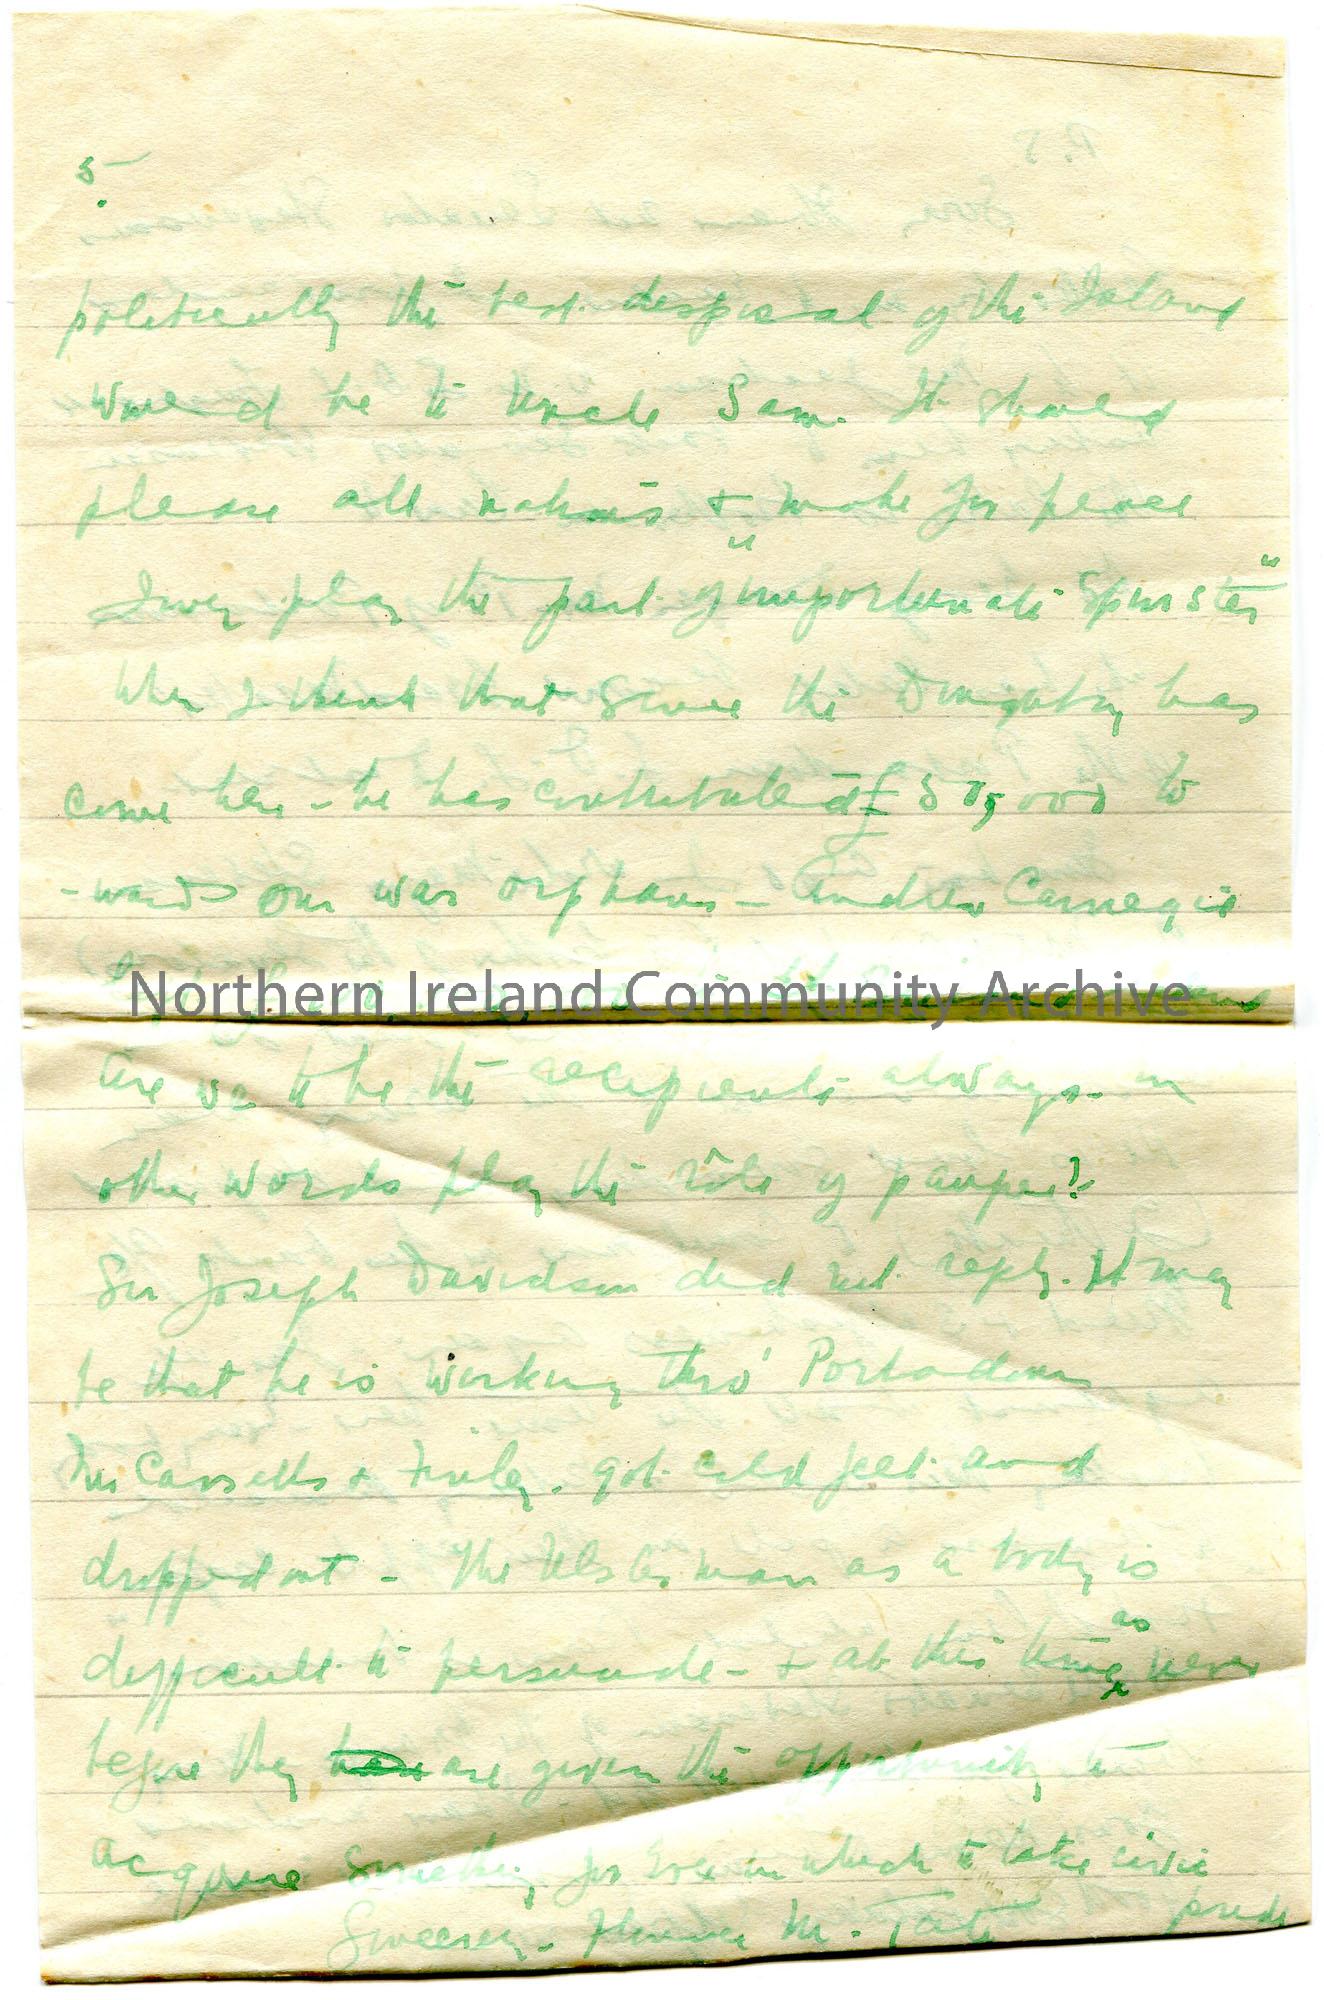 5.
politically the best disposal of the Island
would be to Uncle Sam. It should
please all nations & make for peace
I now play the part of "importunate Spinster"
When I think that since the Dungobry has
come here – he has contributed £ 575,000 to
-wards our war orphans – Andrew Carnegie
Northern Ireland Community Archive
are we to be the recipients always – in
other words play the rôle of pauper?
Sir Joseph Davidson did not reply. It may
be that he is working thro' Portadown
Finlay. got cold feet and
dropped out – The Ulsterman as a body is
difficult to persuade – & at this time as never
before they are given the opportunity to
acquire something for Erin in which to take civic
pride
Sincerely – Florence M. Tate